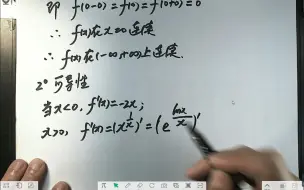 即 f(0-0)=f(0)=f(0+0)=0
∴ f(x)在x=0连续
∴ f(x)在(-∞,+∞)上连续.
2° 可导性
当x<0, f'(x)=-2x;
x>0, f'(x)=(x^{1/x})'=(e^{lnx/x})'